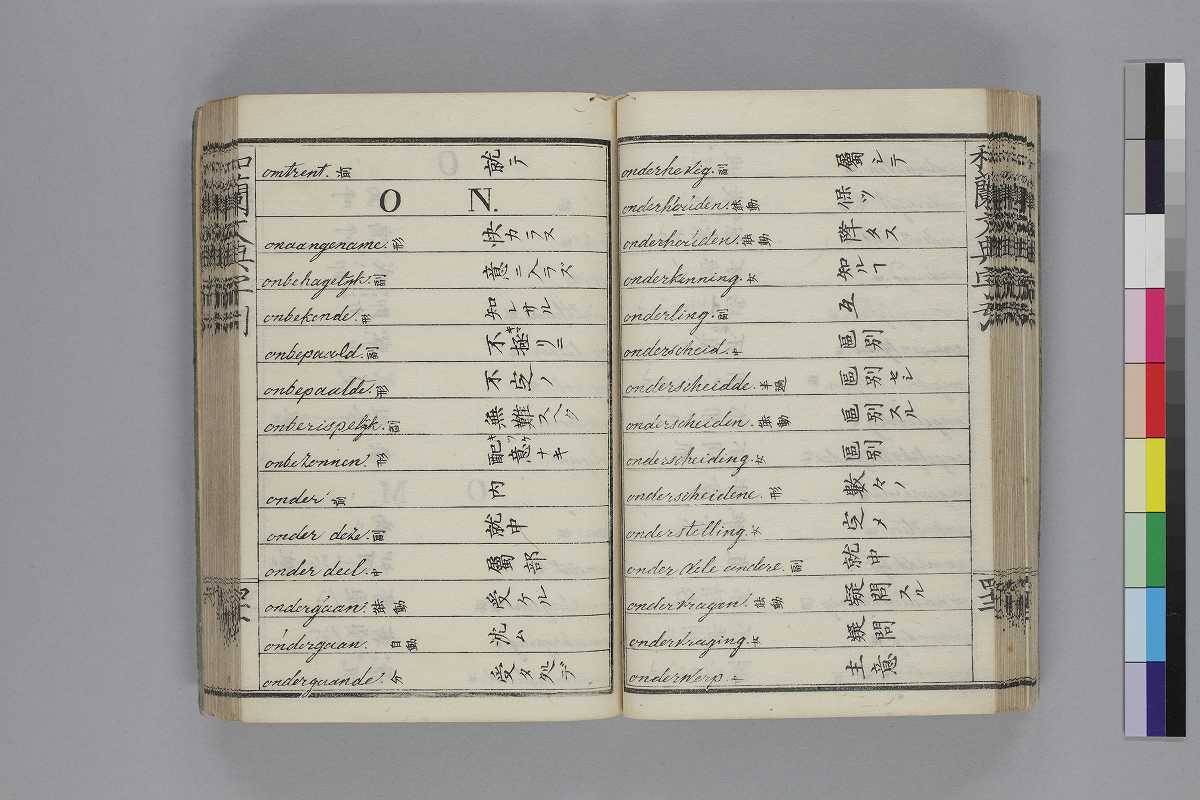 omtrent. 前 就テ
O N.
onaangename. 形 快カラス
onbehagelyk. 副 意ニ入ラズ
onbekende. 形 知レサル
onbepaald. 副 不極リニ
onbepaalde. 形 不定ノ
onberispelyk. 副 無難
onbezonnen. 形 配意ナキ
onder 前 内
onder deze. 副 就中
onder deel. 中 屬部
ondergaan. 能動 受ケル
óndergaan. 自動 沈ム
ondergaande. 分
onderhevig. 副 屬シテ
onderhouden. 能動 保ツ
onderhouden. 能動 降タス
onderkenning. 女 知ルヿ
onderling. 副 互
onderscheid. 中 區別
onderscheidde. 半過 區別セシ
onderscheiden. 能動 區別スル
onderscheiding. 女 區別
onderscheidene. 形 數々ノ
onderstelling. 女 定メ
onder vele andere. 副 就中
ondervragen. 能動 疑問スル
ondervraging. 女 疑問
onderwerp. 中 主意